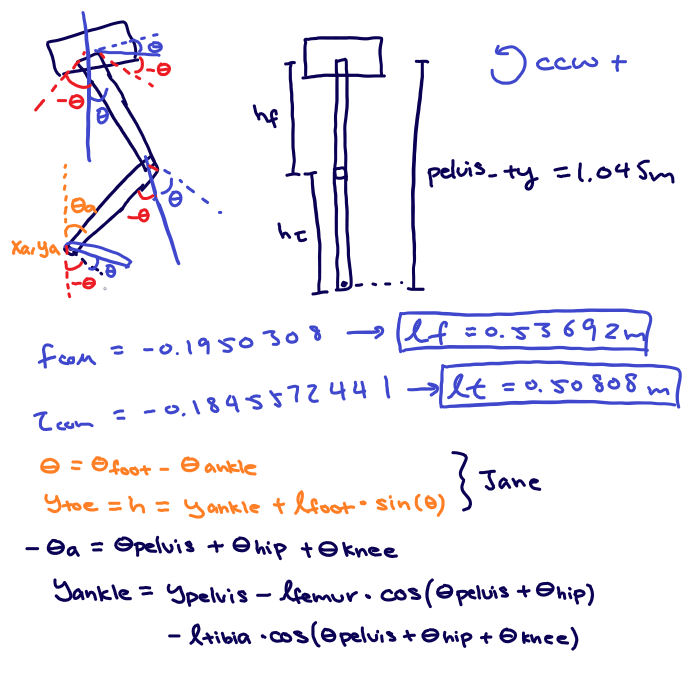 θ
-θ
-θ
θ
ccw +
hf
pelvis_ty = 1.045m
θ
θa
-θ
hτ
xa,ya
θ
-θ
fcom = -0.1950308 → lf = 0.53692m
τcom = -0.1845572441 → lt = 0.50808m
θ = θfoot - θankle
ytoe = h = yankle + lfoot · sin(θ)
} Jane
-θa = θpelvis + θhip + θknee
yankle = ypelvis - lfemur · cos(θpelvis + θhip)
- ltibia · cos(θpelvis + θhip + θknee)